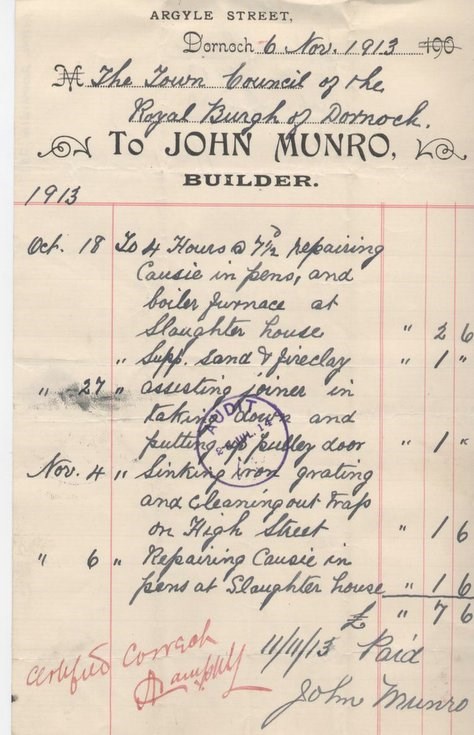 ARGYLE STREET,
Dornoch 6 Nov. 1913 190
M The Town Council of the
Royal Burgh of Dornoch.
To JOHN MUNRO,
BUILDER.
1913
Oct. 18 To 4 Hours @ 7½ᴰ repairing
Causie in pens, and
boiler furnace at
Slaughter house " 2 6
" Supp. Sand & fireclay " 1 "
" 27 " assisting joiner in
taking down and
putting up pulley door " 1 "
Nov. 4 " Sinking iron grating
and cleaning out trap
on High Street " 1 6
" 6 " Repairing Causie in
pens at Slaughter house " 1 6
£ " 7 6
AUDIT
Certified Correct
11/11/13 Paid
John Munro